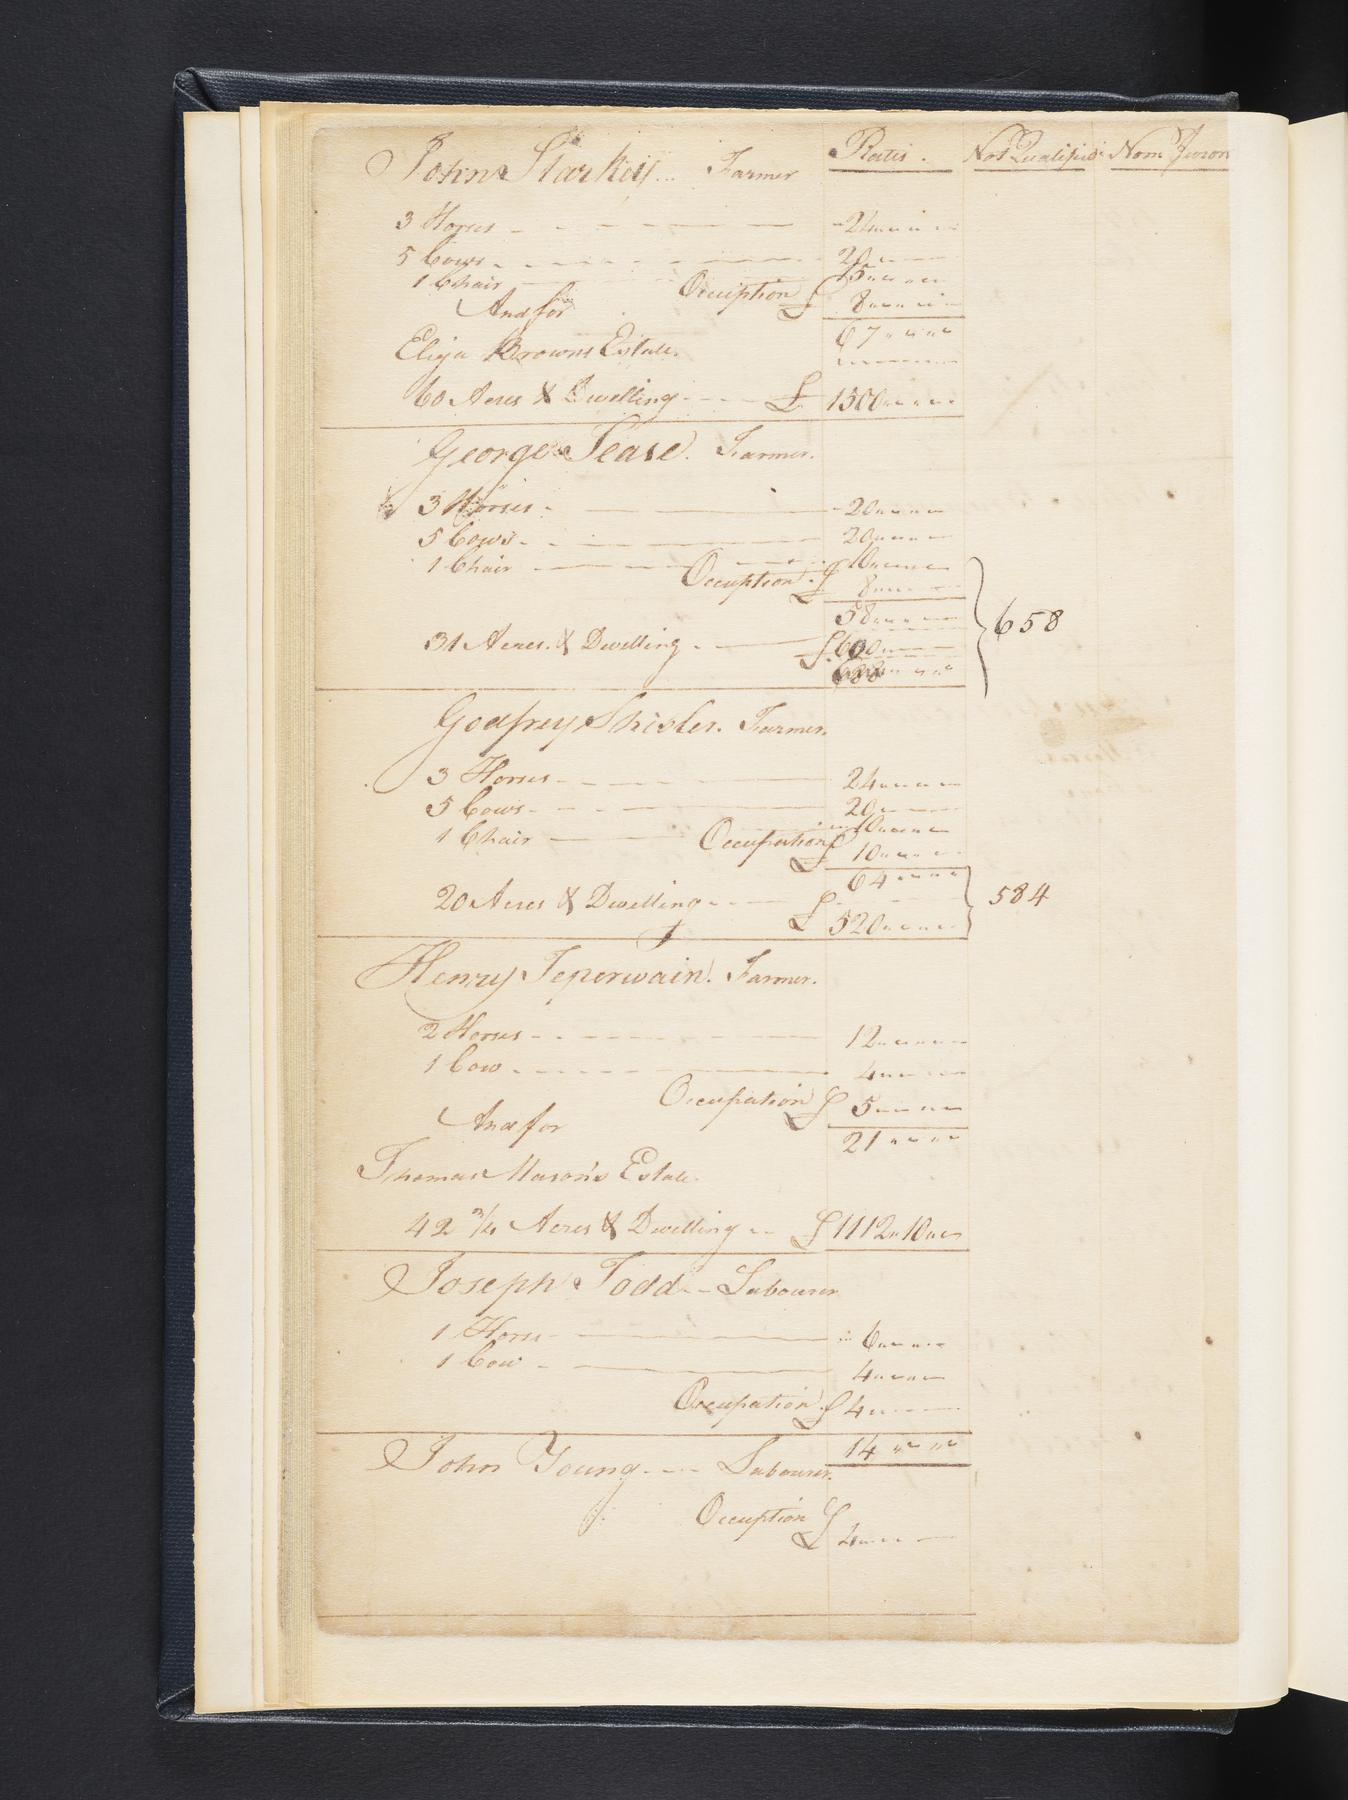 John Starkey... Farmer Rates. Not Qualified Nom Juron
3 Horses 24
5 Cows 20
1 Chair 15
Occuption £ 8
And for
67
Eliza Browns Estate.
60 Acres & Dwelling £ 1500
George Pease. Farmer.
3 Horses 20
5 Cows 20
1 Chair 10
Occuption £ 8
58
658
31 Acres. & Dwelling £ 600
Godfrey Shisler. Farmer.
3 Horses 24
5 Cows 20
1 Chair 10
Occupation £ 10
64
584
20 Acres & Dwelling £ 520
Henry Teperwain. Farmer.
2 Horses 12
1 Cow 4
Occupation £ 5
And for
21
Thomas Mason's Estate.
42 3/4 Acres & Dwelling £ 1112 " 10
Joseph Todd - Labourer
1 Horse 6
1 Cow 4
Occupation £ 4
14
John Young Labourer.
Occuption £ 4